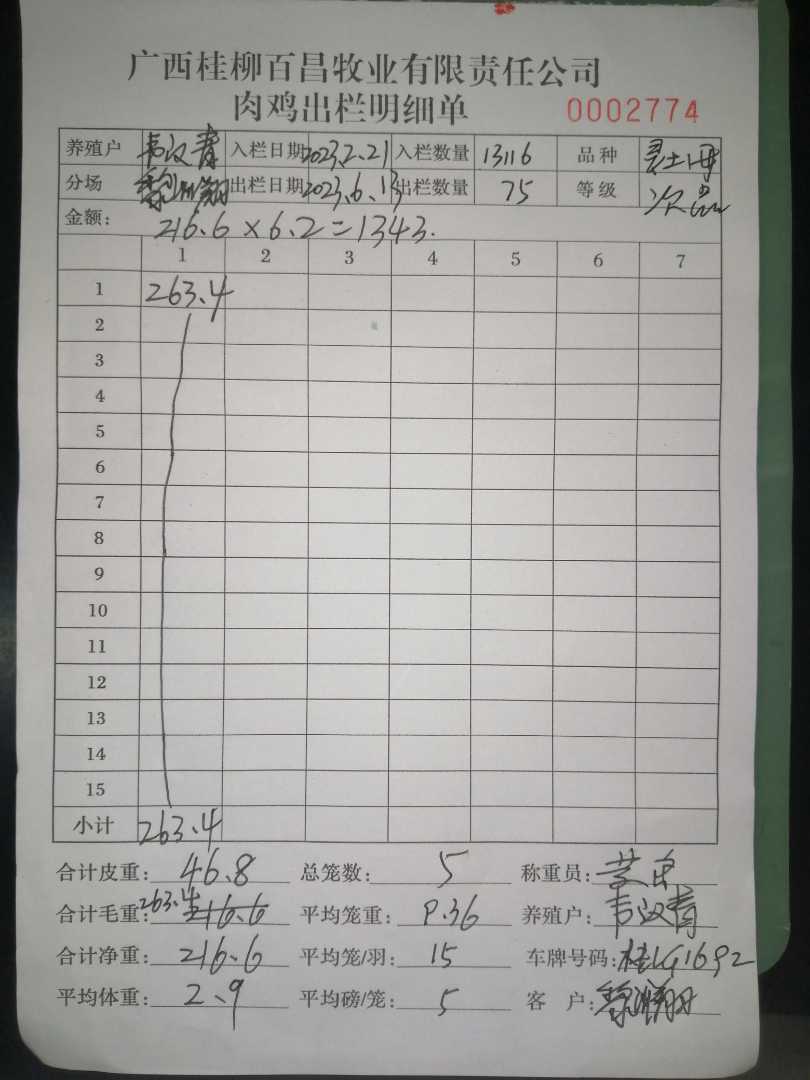 广西桂柳百昌牧业有限责任公司
肉鸡出栏明细单 0002774
养殖户 韦汉青 入栏日期 2023.2.21 入栏数量 13116 品种
分场 出栏日期 2023.6.13 出栏数量 75 等级 次品
金额: 216.6×6.2=1343.
1 2 3 4 5 6 7
1 263.4
2
3
4
5
6
7
8
9
10
11
12
13
14
15
小计 263.4
合计皮重: 46.8 总笼数: 5 称重员:
合计毛重: 263.4 216.6 平均笼重: 9.36 养殖户: 韦汉青
合计净重: 216.6 平均笼/羽: 15 车牌号码: 桂LG1692
平均体重: 2.9 平均磅/笼: 5 客户: